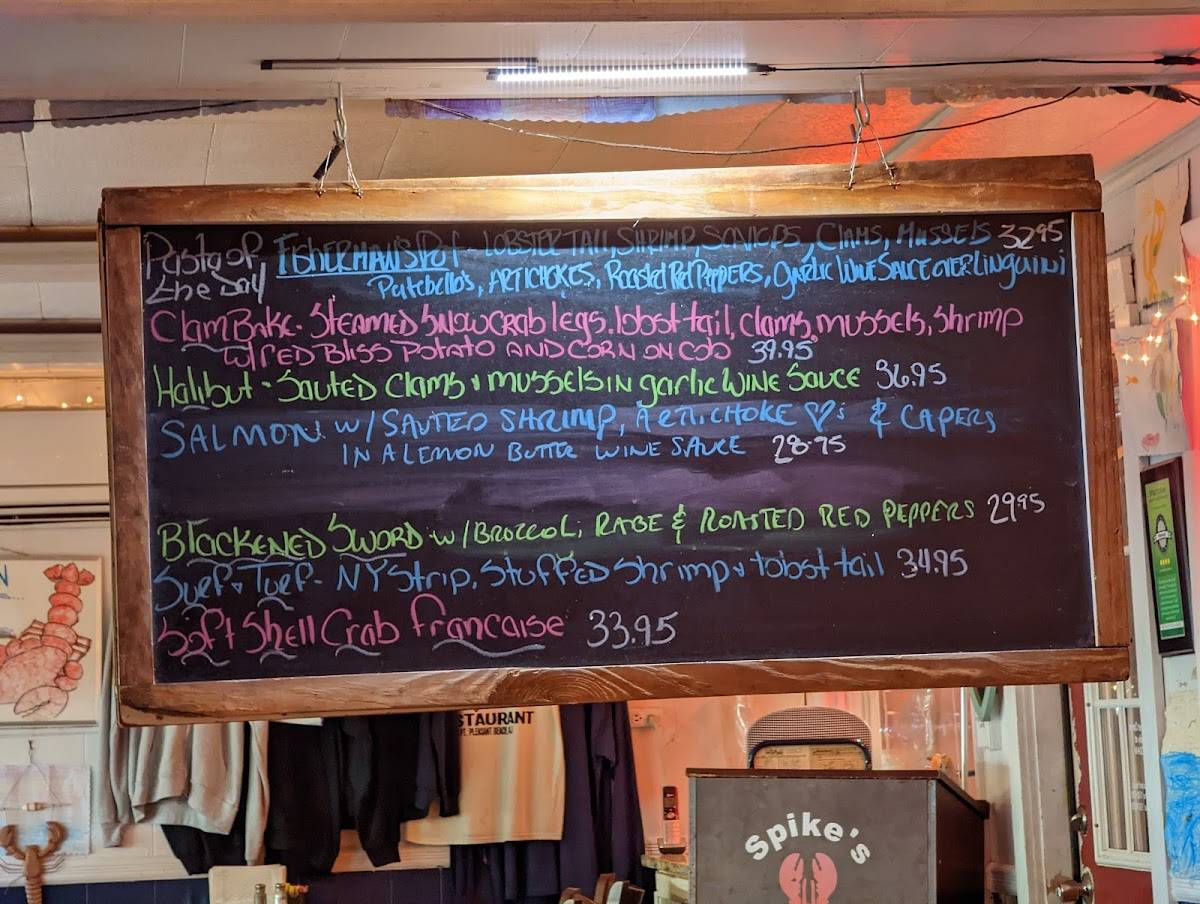 Pasta of FISHERMAN'S POT - LOBSTER TAIL, SHRIMP, SCALLOPS, CLAMS, MUSSELS 32.95
the Day Portebello's, ARTICHOKES, Roasted Red Peppers, Garlic Wine Sauce over Linguini
Clam Bake - STEAMED SNOWCRAb legs, lobst tail, clams, mussels, shrimp
W/ RED BLISS POTATO AND CORN ON COB 39.95
Halibut - SauTED Clams & MUSSELS IN garlic WINE SAUCE 36.95
SALMON W/ SAUTED SHRIMP, ARTICHOKE ♡'s & CAPERS
IN A LEMON BUTTER WINE SAUCE 28.95
BLACKENED SWORD W/ BROCCOLI RABE & ROASTED RED PEPPERS 29.95
Surf & Turf - NY Strip, Stuffed Shrimp & lobst tail 34.95
Soft Shell Crab francaise 33.95
STAURANT
PT. PLEASANT BEACH, NJ
Spike's